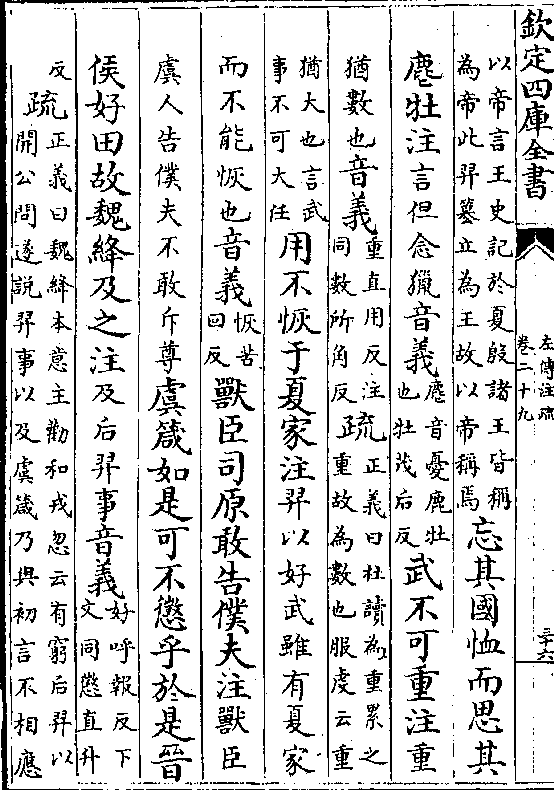 欽定四庫全書
左傳注疏
卷二十九
三十六
以帝言王史記於夏殷諸王皆稱
為帝此羿簒立為王故以帝稱焉
忘其國恤而思其
麀牡注言但念獵音義
麀音憂鹿牡
也牡茂后反
武不可重注重
猶數也音義
重直用反注
同數所角反
疏
正義曰杜讀為重累之
重故為數也服虔云重
猶大也言武
事不可大任
用不恢于夏家注羿以好武雖有夏家
而不能恢也音義
恢苦
回反
獸臣司原敢告僕夫注獸臣
虞人告僕夫不敢斥尊
虞箴如是可不懲乎於是晉
侯好田故魏絳及之注及后羿事音義
好呼報反下
文同懲直升
反
疏
正義曰魏絳本意主勸和戎忽云有窮后羿以
開公問遂説羿事以及虞箴乃與初言不相應